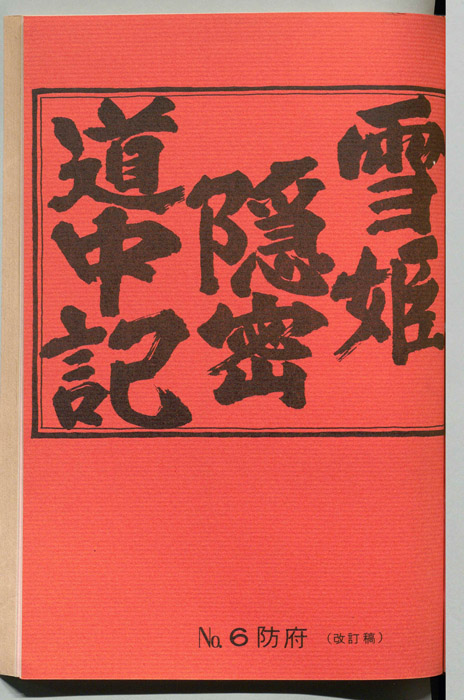 雪姫
隠密
道中記
No. 6 防府 (改訂稿)